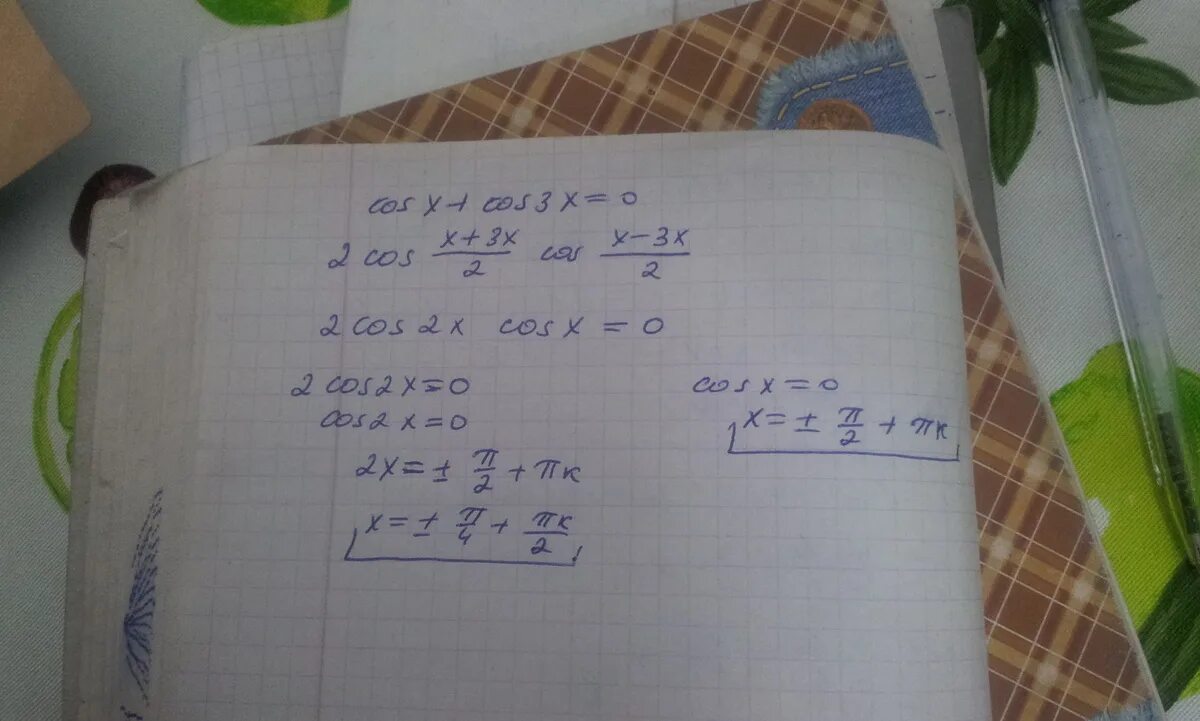 cos x + cos 3x = 0
2 cos (x + 3x)/2 cos (x − 3x)/2
2 cos 2x cos x = 0
2 cos 2x = 0
cos 2x = 0
2x = ± π/2 + πк
x = ± π/4 + πк/2
cos x = 0
x = ± π/2 + πк